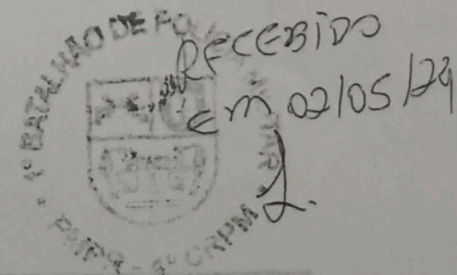 1º BATALHÃO DE
PMPR - 4º CRPM
RECEBIDO
em 02/05/24